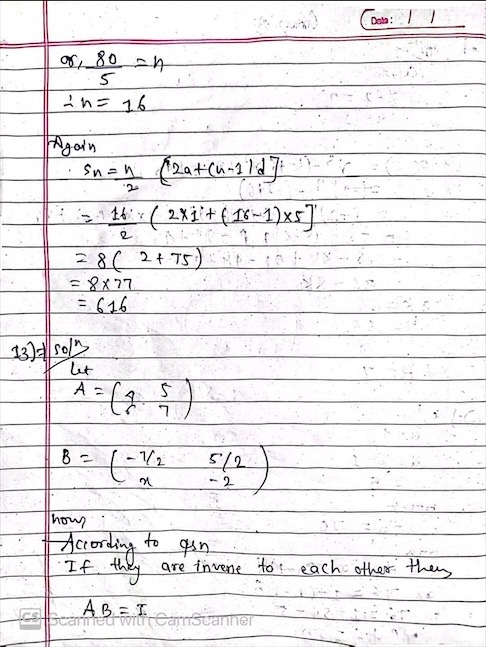 Date: / /
or, 80/5 = n
∴ n = 16
Again
Sn = n/2 [2a+(n-1)d]
= 16/2 ( 2×1+(16-1)×5]
= 8( 2+75)
= 8×77
= 616
13)⇒ soln
Let
A = ( 4 5
6 7 )
B = ( -7/2 5/2
x -2 )
now,
According to qsn
If they are inverse to each other then
AB = I
CS Scanned with CamScanner